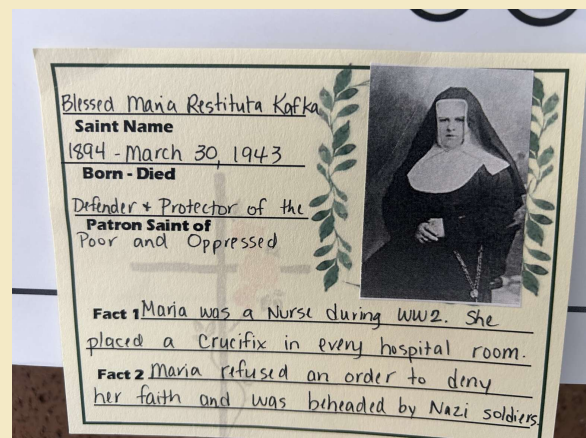 Blessed Maria Restituta Kafka
Saint Name
1894 - March 30, 1943
Born - Died
Defender + Protector of the
Patron Saint of
Poor and Oppressed
Fact 1 Maria was a Nurse during WW2. She
placed a Crucifix in every hospital room.
Fact 2 Maria refused an order to deny
her faith and was beheaded by Nazi soldiers.